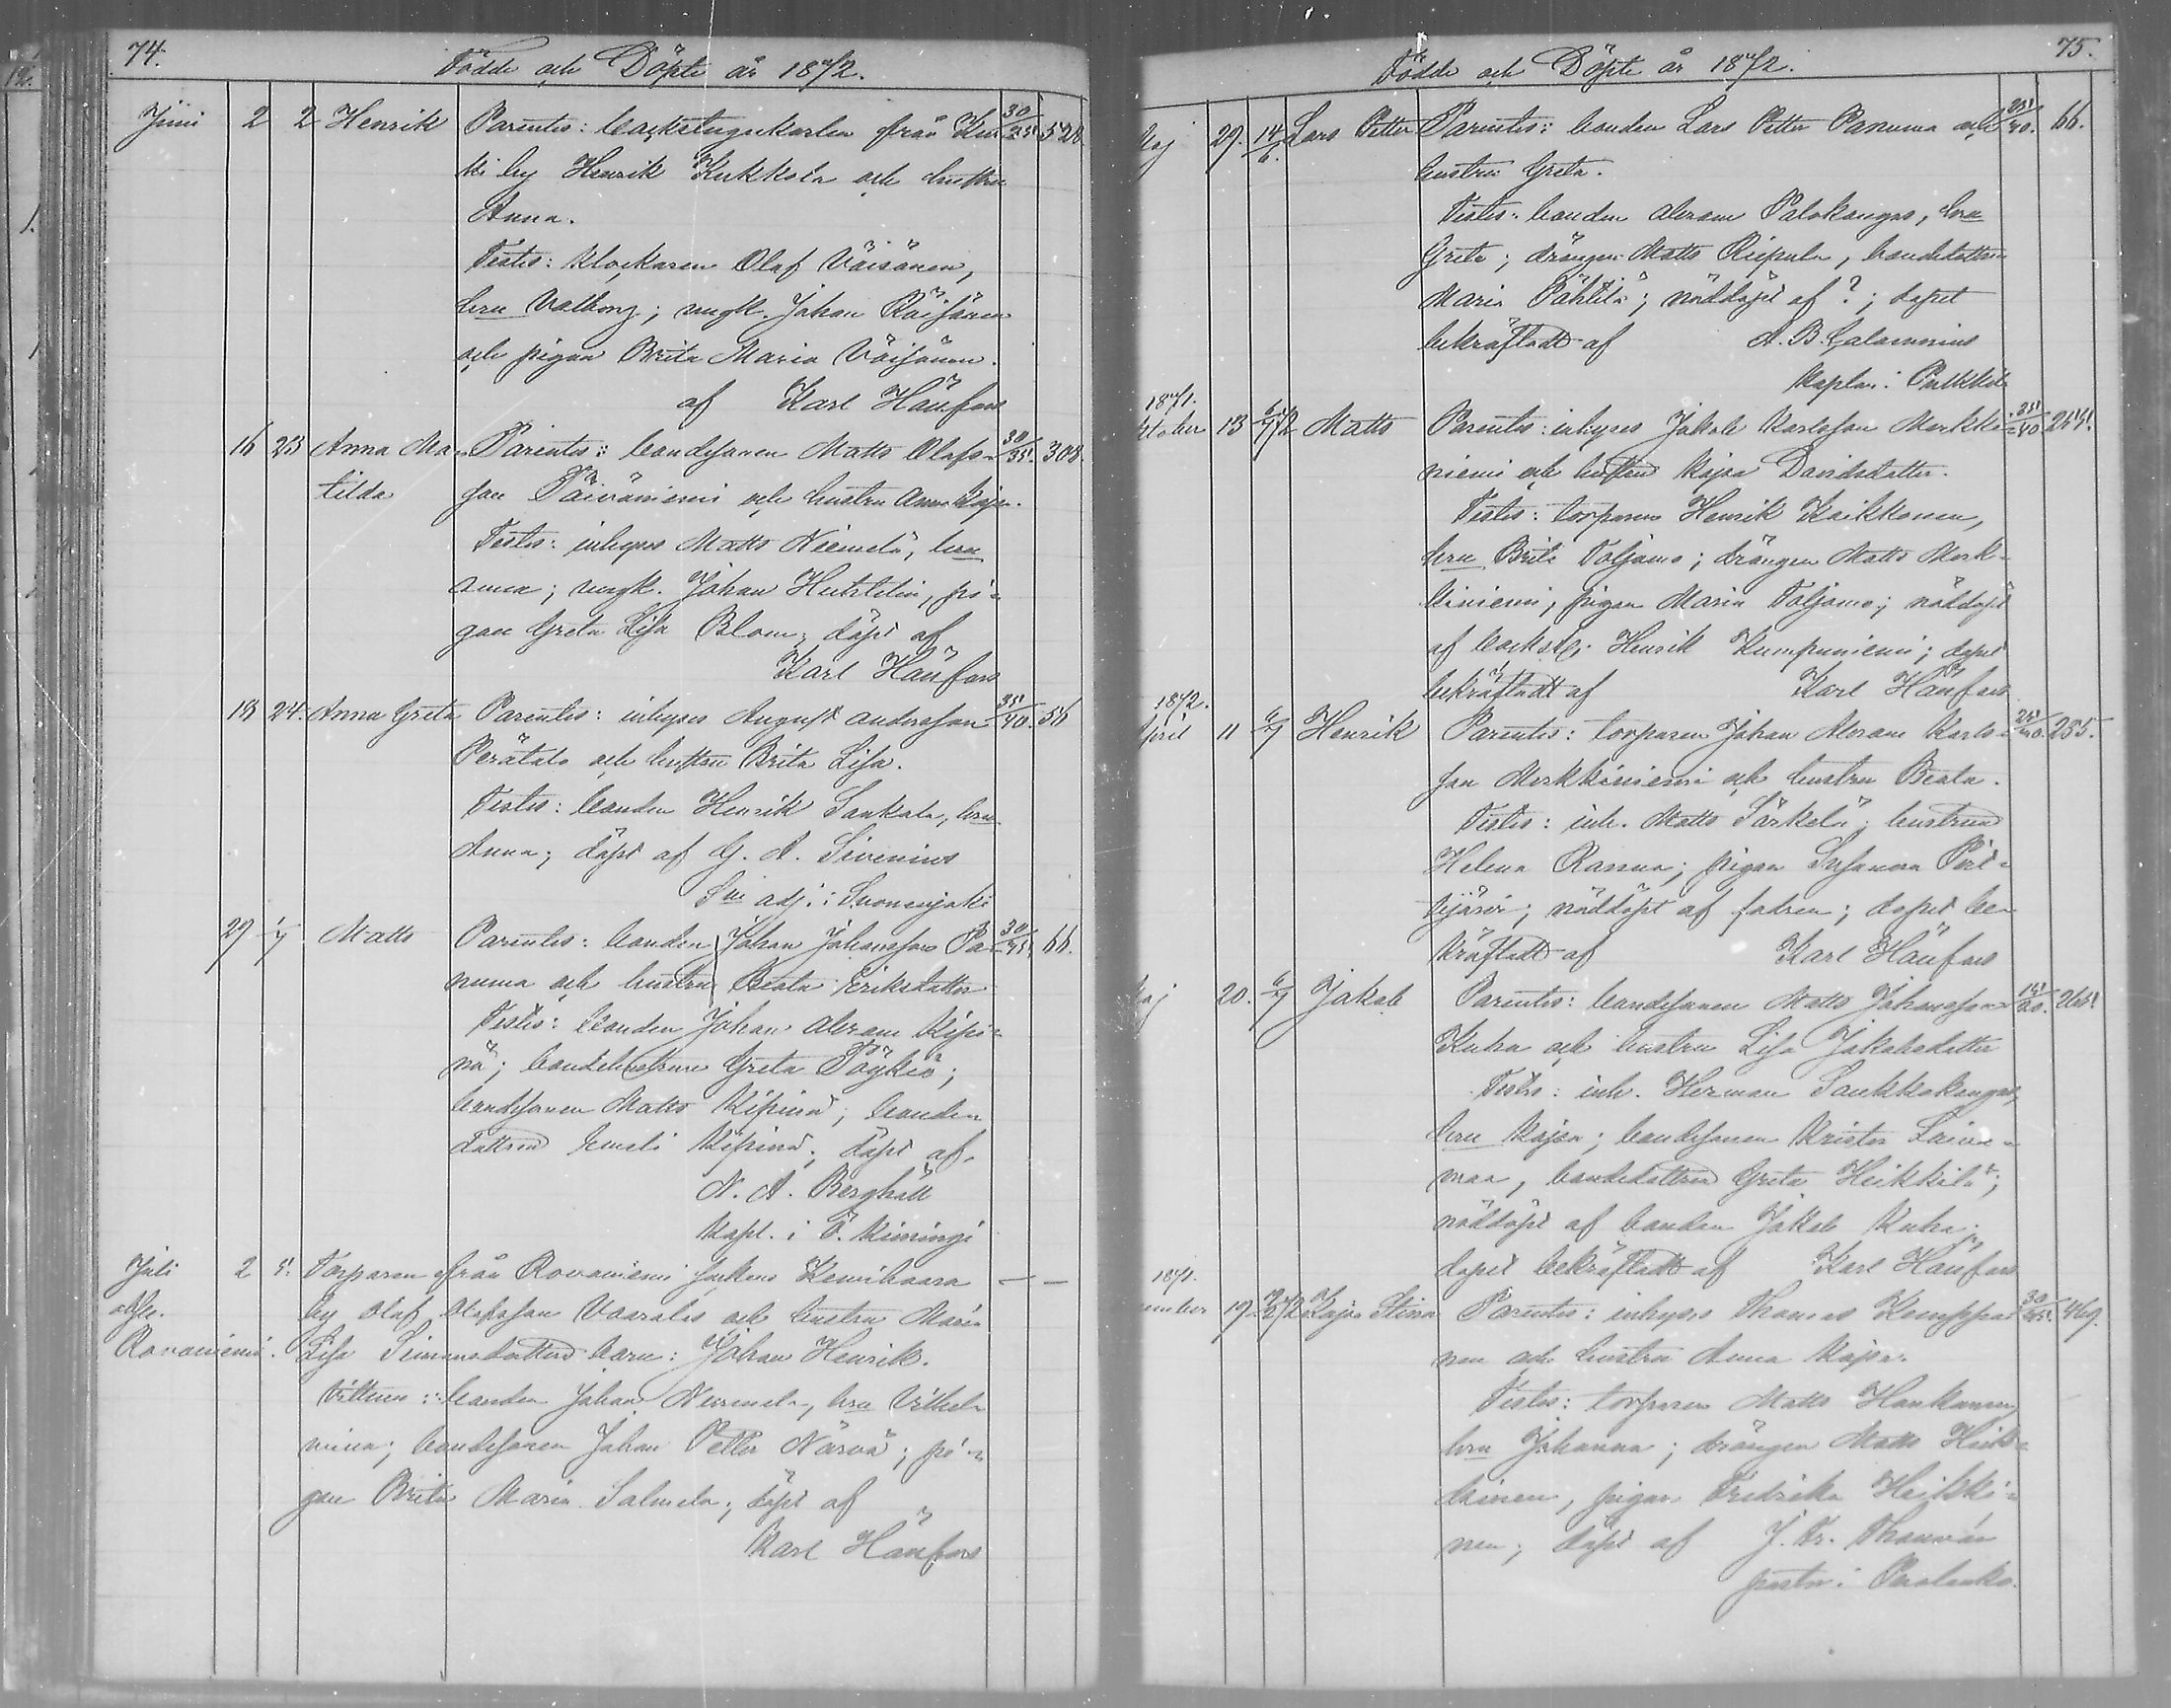 74.
Födde och Döpte år 1872.
Juni 2 2 Henrik Parentes: backstugukarlen från 30/35 528.
ki by Henrik Kukkola och hustru
Anna.
Testes: klockaren Olaf Väisänen,
hru Valborg; ungk. Johan Räisänen
och pigan Brita Maria Väisänen.
af Karl Hänfors
16 23 Anna Ma- Parentes: bondesonen Matts Olafs- 30/35 308.
tilda son Päiväniemi och hustru Anna Kajsa.
Testes: inhyses Matts Niemelä, hru
Anna; ungk. Johan Huhtelin, pi-
gan Greta Lisa Blom; döpt af
Karl Hänfors
18 24. Anna Greta Parentes: inhyses August Andersson 35/40. 56
Perätalo och hustru Brita Lisa.
Testes: bonden Henrik Sankala, hru
Anna; döpt af G. A. Sivenius
adj. i Suomenjoki
29 1/7 Matts Parentes: bonden Johan Johansson Pa- 30/35. 66.
numa och hustru Beata Eriksdotter
Testes: bonden Johan Abram Kipi-
nä; bondehustrun Greta Pöykiö;
bondesonen Matts Kipinä; bonde-
dottren Kipinä; döpt af
N. A. Berghäll
kapl. i Ö. Kiiminge
Juli 2 5. Torparen från Rovaniemi socken Kemihaara — —
by Olaf Olofsson Vaarala och hustru Maria
Rovaniemi. Lisa Simonsdotters barn: Johan Henrik.
Vittnen: bonden Johan Nurmela, hru Vilhel-
mina; bondesonen Johan Petter Närvä; pi-
gan Brita Maria Salmela; döpt af
Karl Hänfors
75.
Födde och Döpte år 1872.
Maj 29. 14/6. Lars Petter Parentes: bonden Lars Petter Panuma och 35/40. 66.
hustru Greta.
Testes: bonden Abram Palokangas, hru
Greta; drängen Matts Riepula, bondedottren
Maria Pahtila; nöddöpt af ?; dopet
bekräftadt af A. B. Calamnius
kaplan i Pulkkila
1871.
13 6/7 72 Matts Parentes: inhyses Jakob Karlsson Merkki- 35/40
niemi och hustru Kajsa Davidsdotter.
Testes: torparen Henrik Kaikkonen,
hru Brita Taljamo; drängen Matts Merk-
kiniemi, pigan Maria Taljamo; nöddöpt
af Henrik Kumpuniemi; dopet
bekräftadt af Karl Hänfors
1872.
April 11 6/7 Henrik Parentes: torparen Johan Abram Karls- 235.
son Merkkiniemi och hustru Beata.
Testes: inh. Matts Särkelä; hustrun
Helena Ranua; pigan Susanna Port-
tijärvi; nöddöpt af fadren; dopet be-
kräftadt af Karl Hänfors
Maj 20. 6/7 Jakob Parentes: bondesonen Matts Johansson
Kuha och hustru Lisa Jakobsdotter
Testes: inh. Herman Saukkokangas,
hru Kajsa; bondesonen Krister
maa, bondedottren Greta Heikkilä;
nöddöpt af bonden Jakob Kuha;
dopet bekräftadt af Karl Hänfors
1871.
19 Kajsa Stina Parentes: inhyses Thomas Kemppai- 469.
nen och hustru Anna Kajsa.
Testes: torparen Matts Haukanen,
hru Johanna; drängen Matts Heik-
kinen, pigan Fredrika Heikki-
nen; döpt af
pastor i Puolanko.